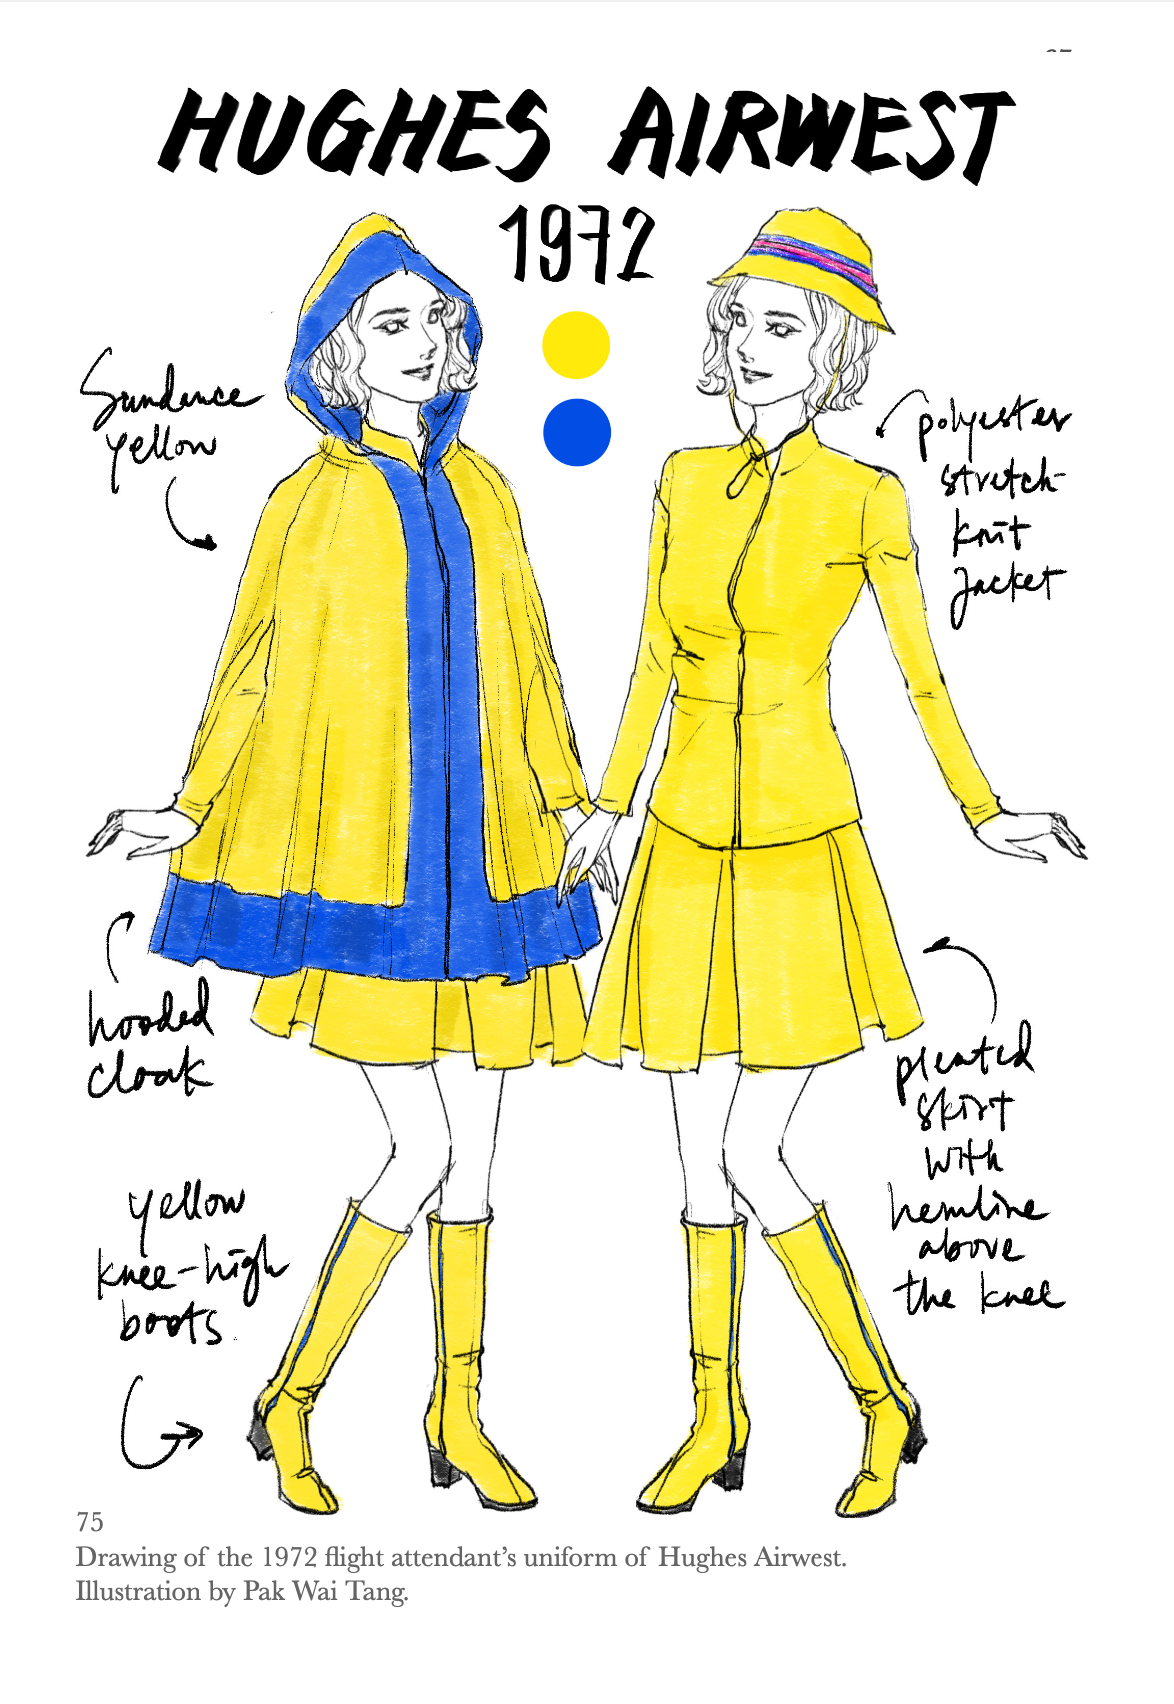 HUGHES AIRWEST
1972
Sundance
yellow
polyester
stretch-
knit
jacket
hooded
cloak
pleated
skirt
with
hemline
above
the knee
yellow
knee-high
boots
75
Drawing of the 1972 flight attendant’s uniform of Hughes Airwest.
Illustration by Pak Wai Tang.